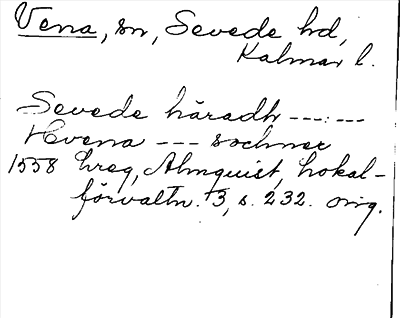 Vena, sn, Sevede hd,
Kalmar l.
Sevede häradh ---:---
Hvena --- sochner
1558 hreg, Almquist, Lokal-
förvaltn. 3, s. 232. orig.